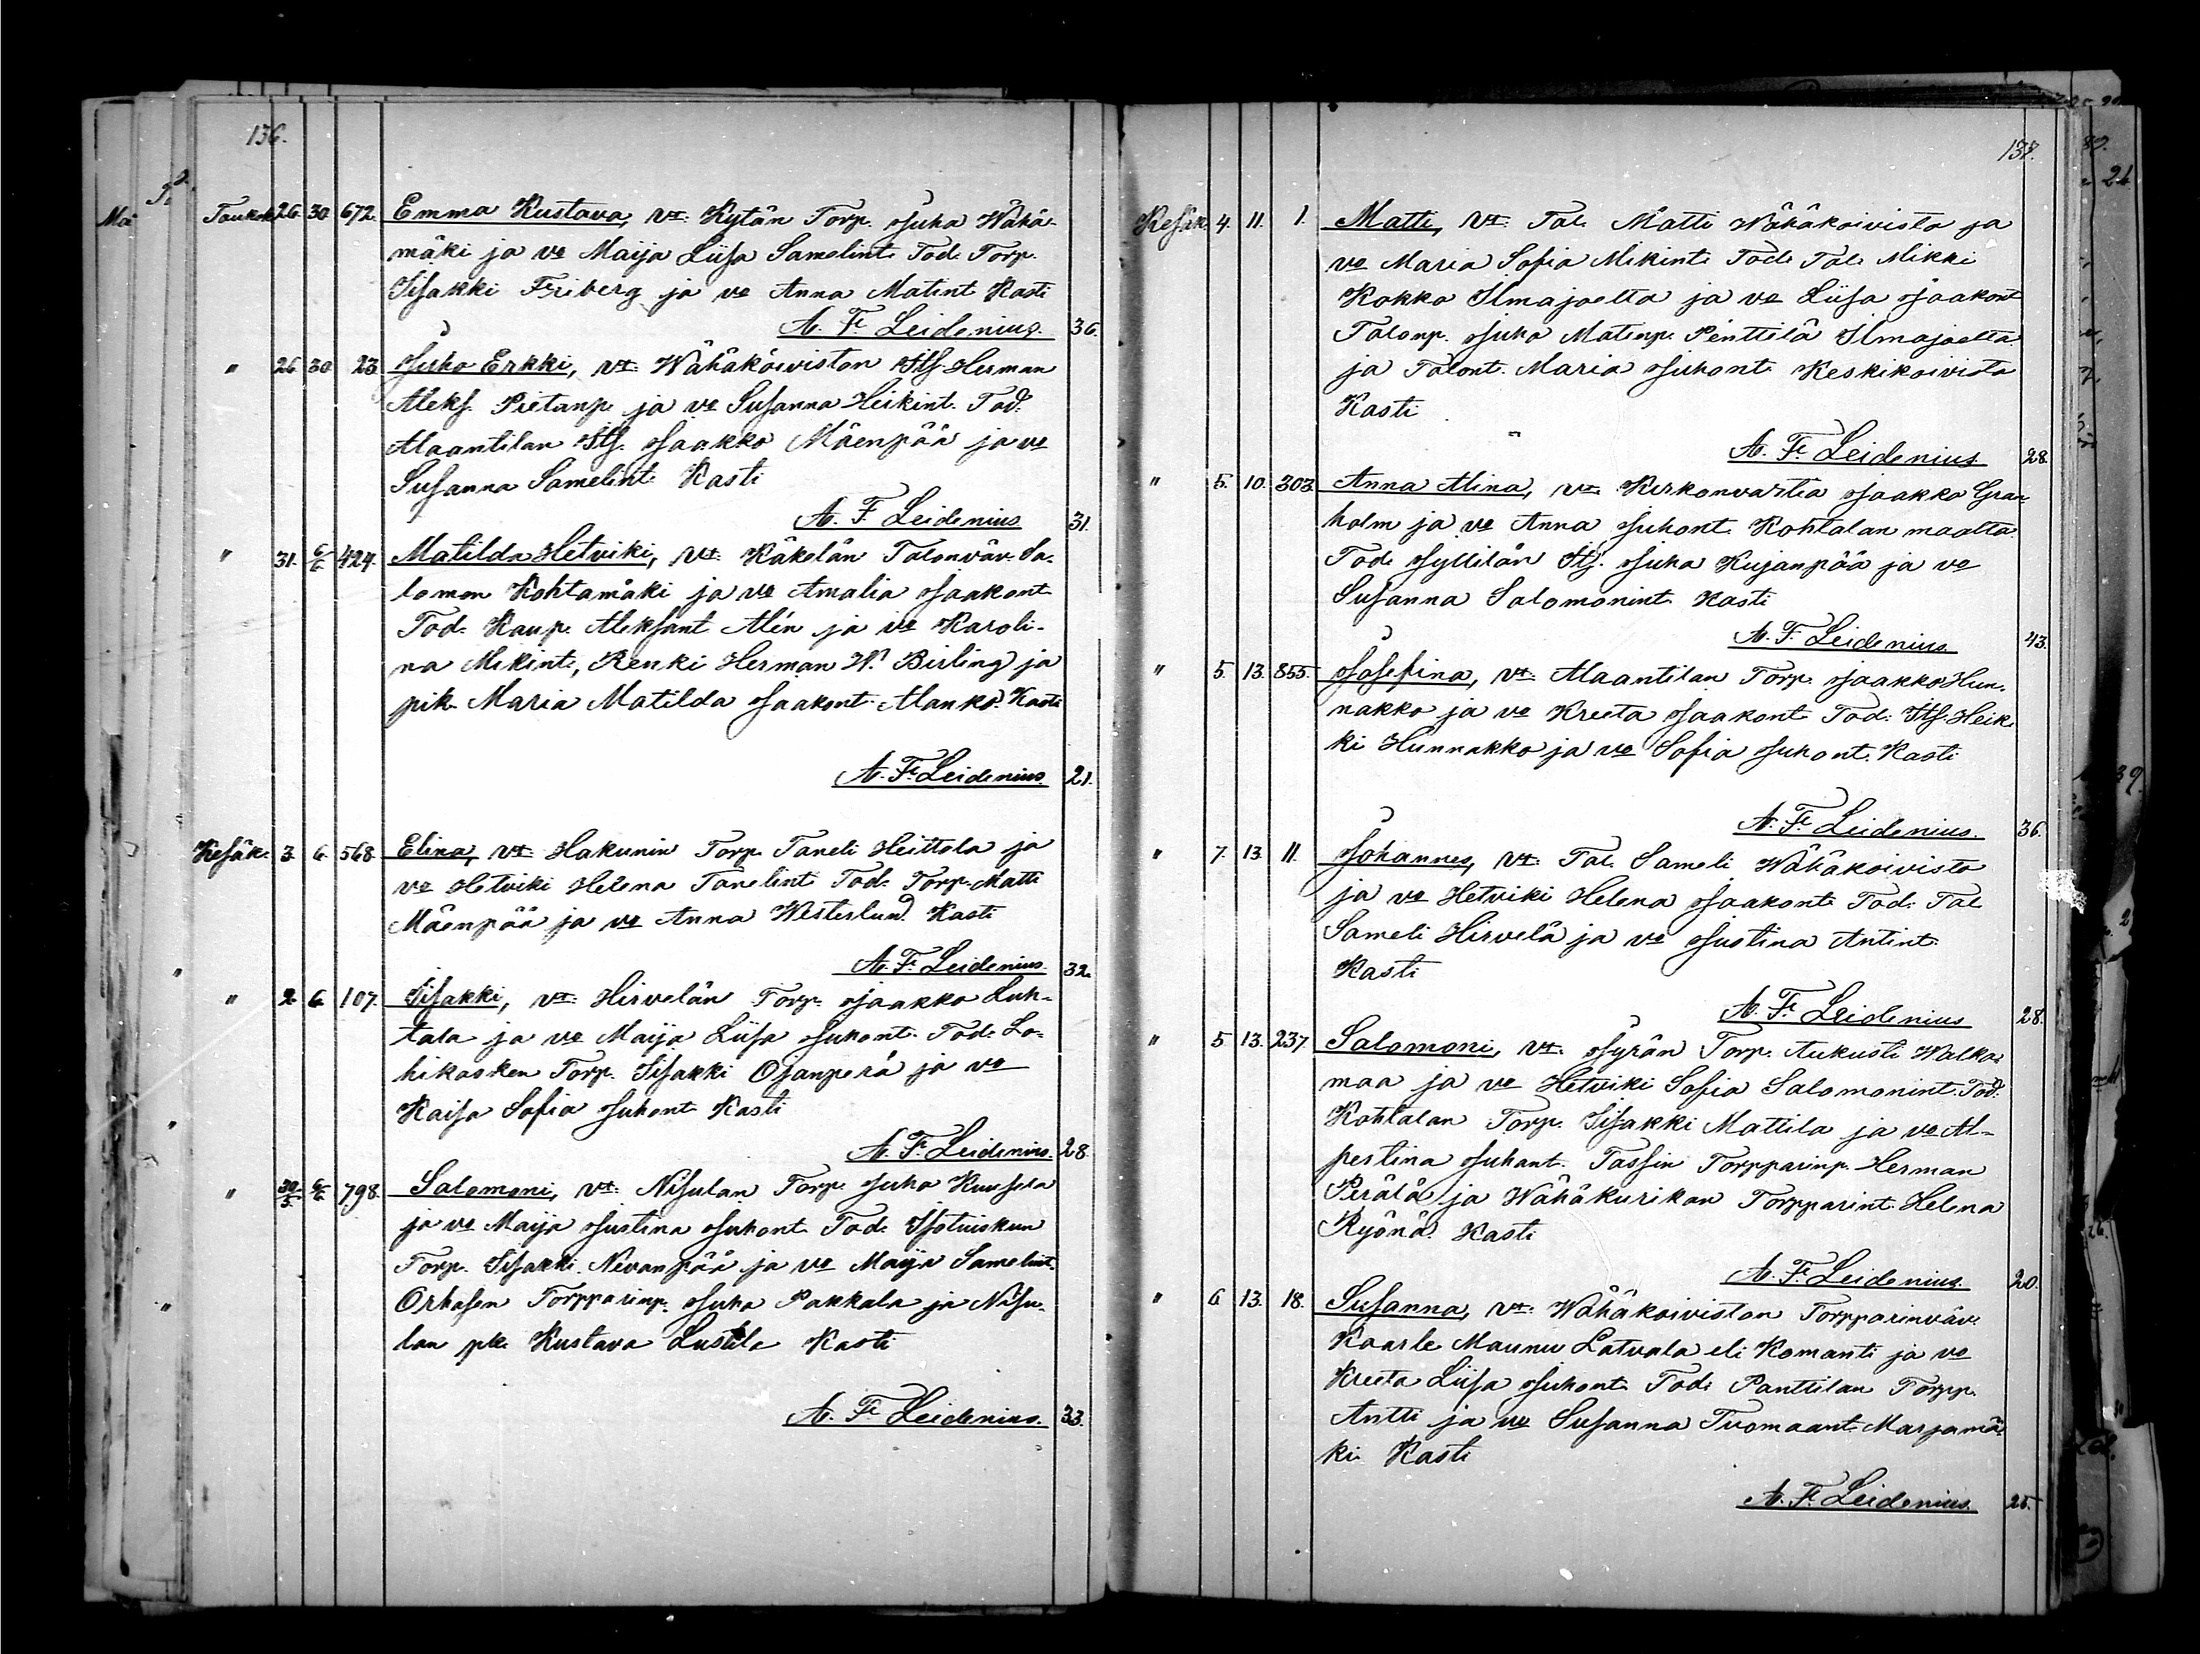 136.
Toukok. 26. 30. 672. Emma Kustava, vt: Kytän Torp. Juha Wähä-
mäki ja vo Maija Liisa Samelint. Tod. Torp.
Iisakki Friberg ja vo Anna Matint. Kasti
A. F. Leidenius. 36.
" 26 30 23. Juho Erkki, vt: Wähäkoiviston Its. Herman
Aleks. Pietarip. ja vo Susanna Heikint. Tod.
Alaantilan Its. Jaakko Mäenpää ja vo
Susanna Samelint. Kasti
A. F. Leidenius 31.
" 31. 6/6 424. Matilda Hetviki, vt: Käkelän Talonväv. Sa-
lomon Kohtamäki ja vo Amalia Jaakont.
Tod. Kaup. Aleksant. Alén ja vo Karoli-
na Mikint., Renki Herman W. Birling ja
pik. Maria Matilda Jaakont. Alanko. Kasti
A. F. Leidenius. 21.
Kesäk. 3. 6. 568. Elina, vt: Hakunin Torp. Taneli Heittola ja
vo Hetviki Helena Tanelint. Tod. Torp. Matti
Mäenpää ja vo Anna Westerlund. Kasti
A. F. Leidenius. 32.
" 2 6. 107. Iisakki, vt: Hirvelän Torp. Jaakko Luh-
tala ja vo Maija Liisa Juhont. Tod. Lo-
hikosken Torp. Iisakki Ojanperä ja vo
Kaisa Sofia Juhont. Kasti
A. F. Leidenius. 28.
" 30/5. 6/6 798. Salomoni, vt: Nisulan Torp. Juha Kuusela
ja vo Maija Justina Juhont. Tod. Isotuiskun
Torp. Iisakki Nevanpää ja vo Maija Samelint.
Orhasen Torpparinp. Juha Pakkala ja Nisu-
lan pk. Kustava Lustila Kasti
A. F. Leidenius. 33.
137.
Kesäk. 4. 11. 1. Matti, vt: Tal. Matti Wähäkoivisto ja
vo Maria Sofia Mikint. Tod. Tal. Mikki
Kokko Ilmajoelta ja vo Liisa Jaakont.
Talonp. Juho Matinp. Penttilä Ilmajoelta
ja Talont. Maria Juhont. Keskikoivisto
Kasti
A. F. Leidenius. 28.
" 5. 10. 303. Anna Alina, vt: Kirkonvartia Jaakko Gran-
holm ja vo Anna Juhont. Kohtalan maalta.
Tod. Jyllilän Its. Juha Kujanpää ja vo
Susanna Salomonint. Kasti
A. F. Leidenius. 43.
" 5. 13. 855. Josefina, vt: Alaantilan Torp. Jaakko Hun-
nakko ja vo Kreeta Jaakont. Tod: Its. Heik-
ki Hunnakko ja vo Sofia Juhont. Kasti
A. F. Leidenius. 36.
" 7. 13. 11. Johannes, vt: Tal. Sameli Wähäkoivisto
ja vo Hetviki Helena Jaakont. Tod: Tal.
Sameli Hirvelä ja vo Justina Antint.
Kasti
A. F. Leidenius 28.
" 5 13. 237. Salomoni, vt: Jyrän Torp. Aukusti Walka-
maa ja vo Hetviki Sofia Salomonint. Tod:
Kohtalan Torp. Iisakki Mattila ja vo Al-
pertina Juhant. Tassin Torpparinp. Herman
Perälä ja Wähäkurikan Torpparint. Helena
Ryönä. Kasti
A. F. Leidenius. 20.
" 6 13. 18. Susanna, vt: Wähäkoiviston Torpparinväv.
Kaarle Maunu Latvala eli Komanti ja vo
Kreeta Liisa Juhont. Tod: Panttilan Torpp.
Antti ja vo Susanna Tuomaant. Marjamä-
ki Kasti
A. F. Leidenius. 25.